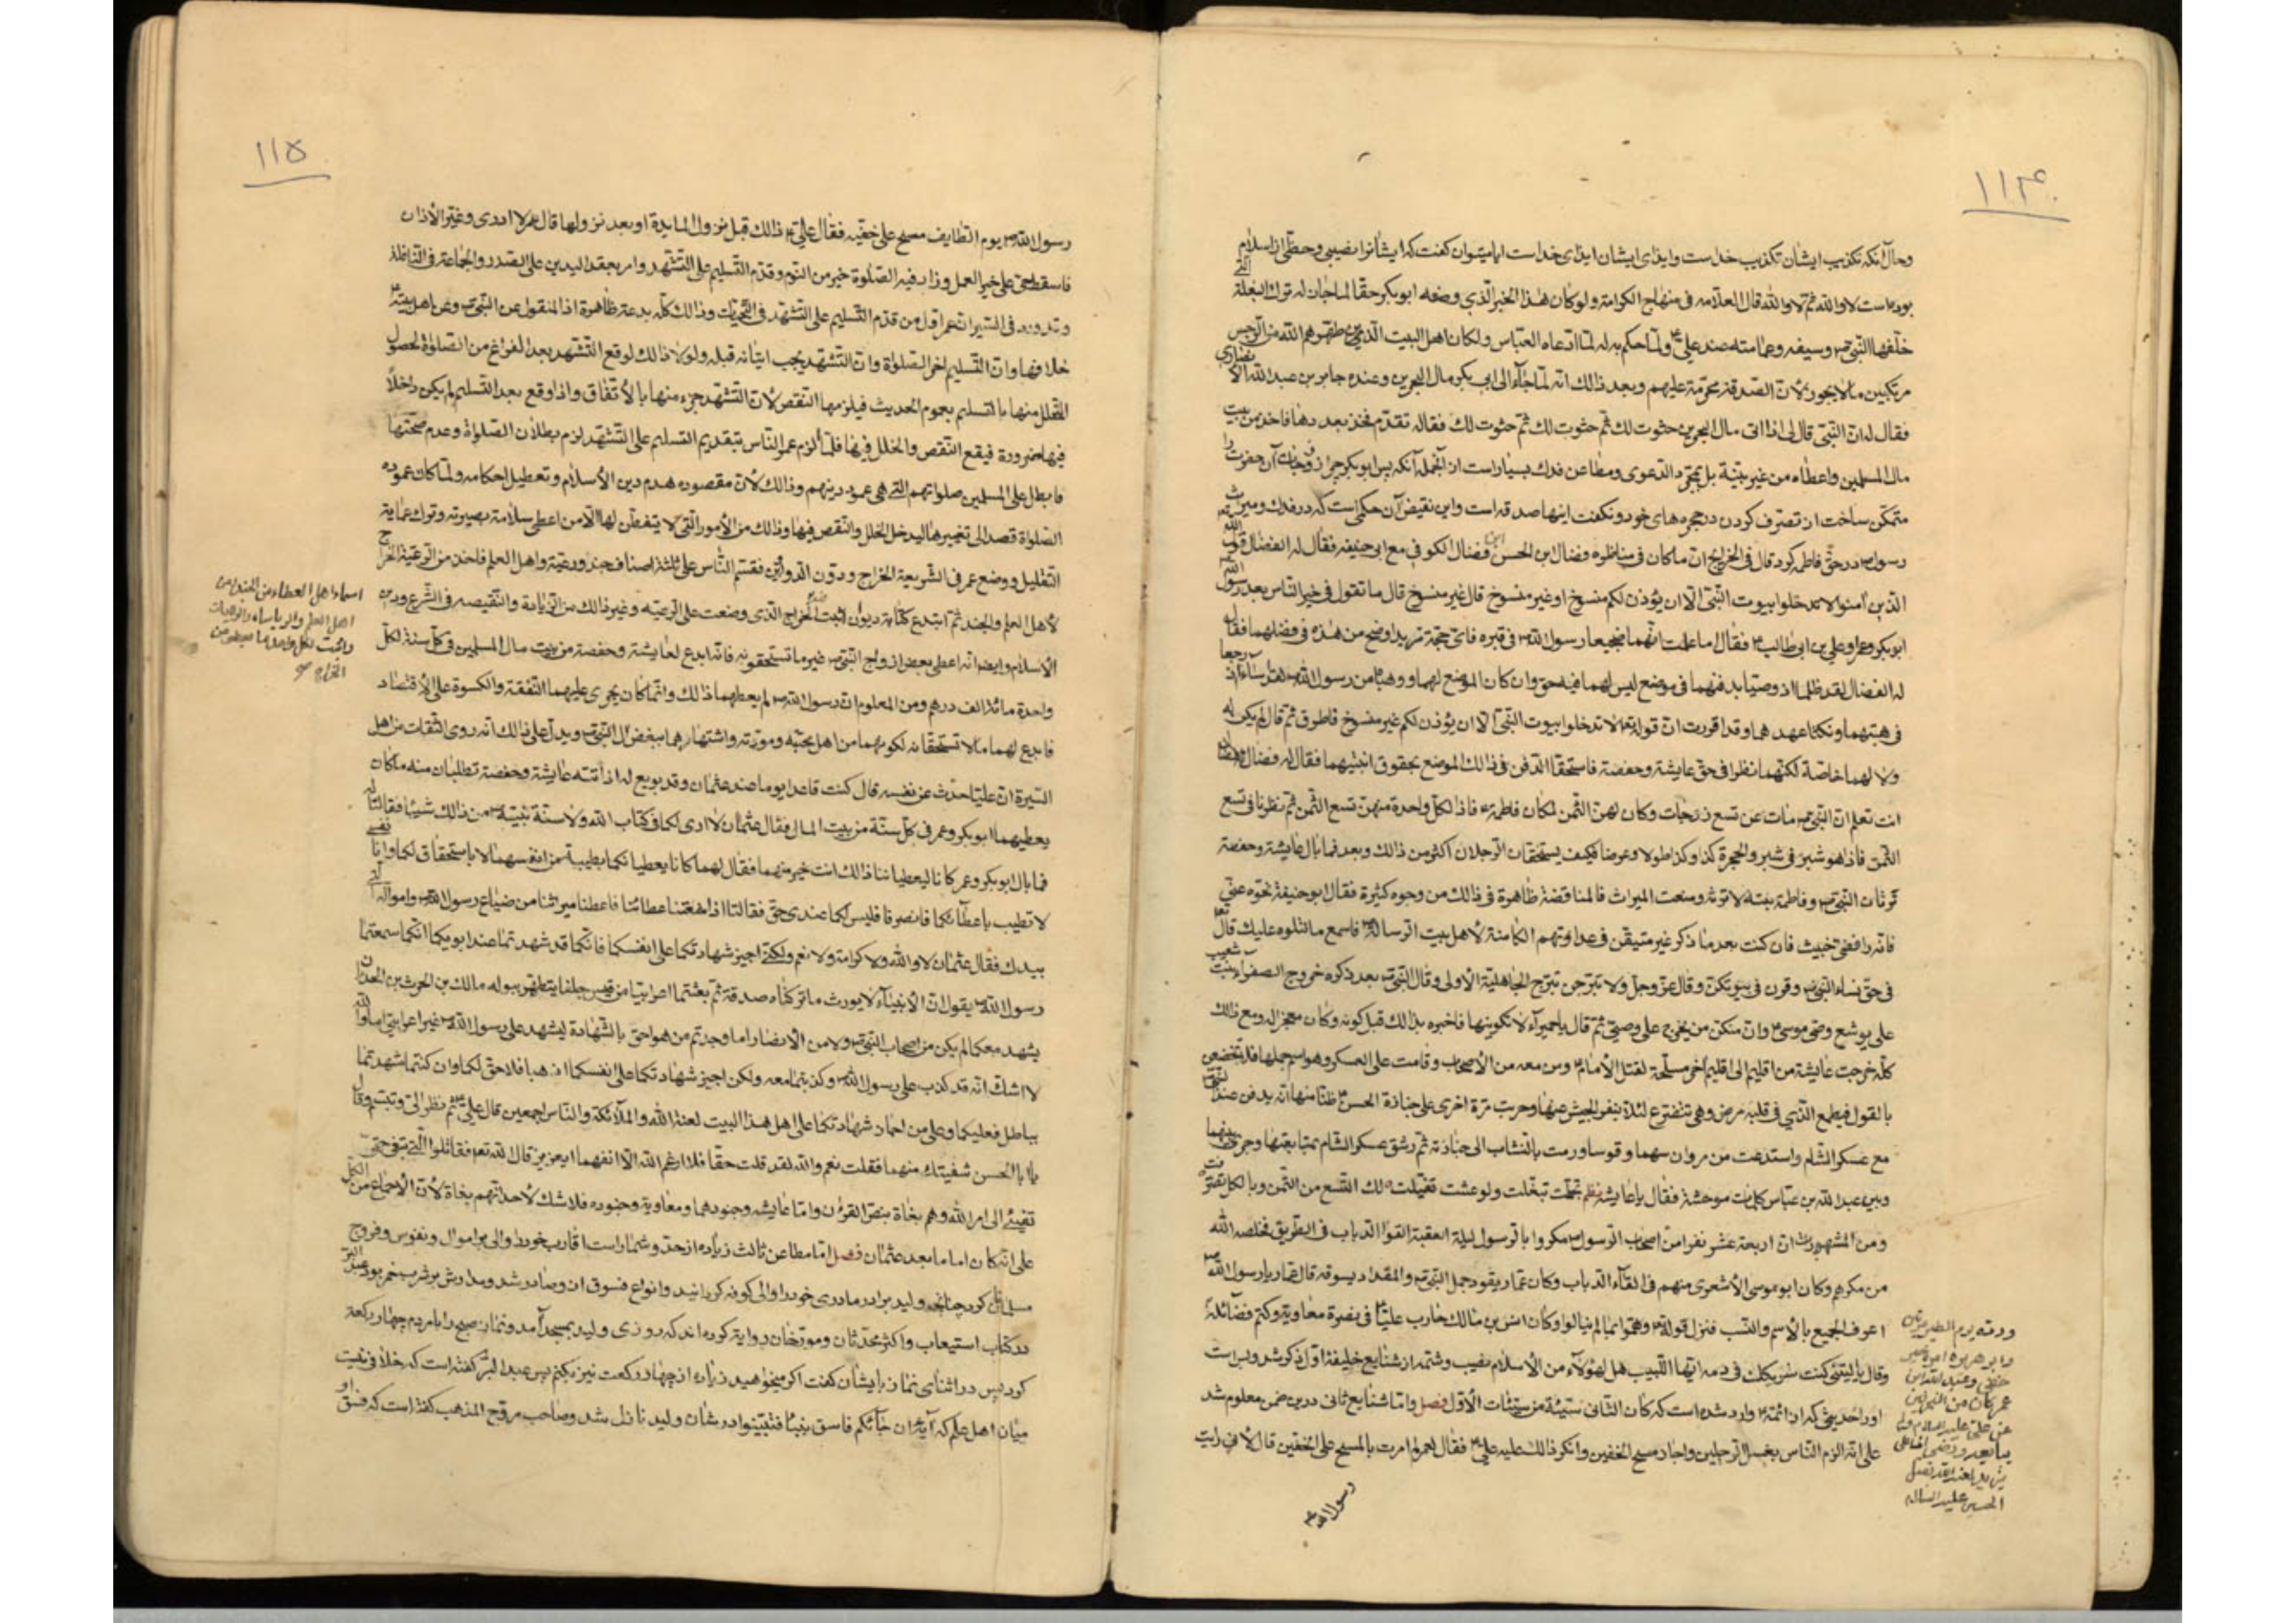 ١١۴
وحال آنکه تکذیب ایشان تکذیب خداست وایذای ایشان ایذای خداست ایا میتوان گفت که ایشانرا نصیبی وحظی از اسلام
بوده است لا والله ثم لا والله قال العلامه فی منهاج الکرامة ولو کان هذا الخبر الذی وضعه ابو بکر حقا لما جاز له ترک البغلة التی
خلفها النبی ص وسیفه وعمامته عند علی ع ولما حکم به له لما ادعاه العباس ولکان اهل البیت الذین طهرهم الله من الرجس
مرتکبین ما لا یجوز لان الصدقة محرمة علیهم وبعد ذالک انه لما جاء الی ابی بکر مال البحرین وعنده جابر بن عبد الله الانصاری
فقال له ان النبی قال لی اذا اتی مال البحرین حثوت لک ثم حثوت لک ثم حثوت لک فقال له تقدم فخذ بعددها فاخذ من بیت
مال المسلمین واعطاه من غیر بینة بل بمجرد الدعوی ومطاعن فدک بسیار است از آنجمله آنکه پس ابو بکر چرا زوجات آن حضرت را
متمکن ساخت از تصرف کردن در حجره های خود و نگفت اینها صدقه است واین نقیض آن حکمی است که در فدک ومیراث
رسول ص در حق فاطمه کرد قال فی الخرایج ان ما کان فی مناظره فضال ابن الحسن فضال الکوفی مع ابی حنیفه فقال له الفضال قول الله تعه
الذین امنوا لا تدخلوا بیوت النبی الا ان یؤذن لکم منسوخ او غیر منسوخ قال غیر منسوخ قال ما تقول فی خیر الناس بعد رسول الله ص
ابو بکر وعمر او علی بن ابی طالب ع فقال اما علمت انهما ضجیعا رسول الله ص فی قبره فای حجة ترید اوضح من هذه فی فضلهما فقال
له الفضال لقد ظلما اذ وصیا بدفنهما فی موضع لیس لهما فیه حق وان کان الموضع لهما ووهباه من رسول الله ص لقد اساءا اذ رجعا
فی هبتهما ونکثا عهدهما وقد اقررت ان قوله تعه لا تدخلوا بیوت النبی الا ان یؤذن لکم غیر منسوخ فاطرق ثم قال لم یکن له
ولا لهما خاصة لکنهما نظرا فی حق عایشة وحفصة فاستحقا الدفن فی ذالک الموضع بحقوق ابنتیهما فقال له فضال
انت تعلم ان النبی ص مات عن تسع زوجات وکان لهن الثمن لمکان فاطمة ع فاذا لکل واحدة منهن تسع الثمن ثم نظرنا فی تسع
الثمن فاذا هو شبر فی شبر والحجرة کذا وکذا طولا وعرضا فکیف یستحقان الرجلان اکثر من ذالک وبعد فما بال عایشة وحفصة
ترثان النبی ص وفاطمة بنته لا ترث ومنعت المیراث فالمناقضة ظاهرة فی ذالک من وجوه کثیرة فقال ابو حنیفة نحوه عنی
فانه رافضی خبیث فان کنت بعد ما ذکر غیر متیقن فی عداوتهم الکامنة لاهل بیت الرسالة فاسمع ما نتلوه علیک قال تعه
فی حق نساء النبی ص وقرن فی بیوتکن وقال عز وجل ولا تبرجن تبرج الجاهلیة الاولی وقال النبی ص بعد ذکره خروج الصفراء بنت شعیب
علی یوشع وصی موسی ع وان منکن من یخرج علی وصیی ثم قال یا حمیراء لا تکونینها فاخبره بذالک قبل کونه وکان معجز له ومع ذالک
کله خرجت عایشة من اقلیم الی اقلیم آخر مسلحة لقتل الامام ع ومن معه من الاصحاب وقامت علی العسکر وهو اسم جملها فلا تخضعن
بالقول فیطمع الذی فی قلبه مرض وهی تتضرع لئلا ینفر الجیش عنها وحربت مرة اخری علی جنازة الحسن ع ظنا منها انه یدفن عند النبی ص
مع عسکر الشام واستدعت من مروان سهما وقوسا ورمت بالنشاب الی جنازته ثم رشق عسکر الشام بمتابعتها وجرت بینهما
وبین عبد الله بن عباس کلمات موحشة فقال یا عایشه نظم تجملت تبغلت ولو عشت تفیلت لک التسع من الثمن وبالکل تصرفت
ومن المشهورات ان اربعة عشر نفرا من اصحاب الرسول ص مکروا بالرسول لیلة العقبة القوا الدباب فی الطریق فخلصه الله
من مکرهم وکان ابو موسی الاشعری منهم فی القاء الدباب وکان عمار یقود جمل النبی ص والمقداد یسوقه قال عمار یا رسول الله ص
اعرف الجمیع بالاسم والنسب فنزل قوله تعه وهموا بما لم ینالوا وکان انس بن مالک حارب علیا ع فی نصرة معاویة وکتم فضائله
وقال یا لیتنی کنت شریکک فی دمه ایها اللبیب هل لهؤلاء من الاسلام نصیب وشمه از شنایع خلیفة اول ذکر شد وبس است
او را حدیثی که از ائمة ع وارد شده است که کان الثانی سیئة من سیئات الاول فصل واما شنایع ثانی درین ضمن معلوم شد
علی انه الزم الناس بغسل الرجلین واجاز مسح الخفین وانکر ذالک علیه علی ع فقال لعمر لم امرت بالمسح علی الخفین قال لانی رایت
رسول الله ص
وابو هریرة
وعبد الله ابن
عمر کان من
عن علی علیه السلام
الحسین علیه السلام
١١۵
رسول الله ص یوم الطایف مسح علی خفیه فقال علی ع ذالک قبل نزول المایدة او بعد نزولها قال عمر لا ادری وغیر الاذان
فاسقط حی علی خیر العمل وزاد فیه الصلوة خیر من النوم وقدم التسلیم علی التشهد وامر بعقد الیدین علی الصدر والجماعة فی النافلة
وقد ورد فی السیر ان عمر اول من قدم التسلیم علی التشهد فی التحیات وذالک کله بدعة ظاهرة اذ المنقول عن النبی ص وعن اهل بیته ع
خلافها وان التسلیم اخر الصلواة وان التشهد یجب ایتانه قبله ولولا ذالک لوقع التشهد بعد الفراغ من الصلواة لحصول
التحلل منها بالتسلیم بعموم الحدیث فیلزمها النقص لان التشهد جزء منها بالاتفاق واذا وقع بعد التسلیم لم یکن داخلا
فیها ضرورة فیقع النقص والخلل فیها فلما الزم عمر الناس بتقدیم التسلیم علی التشهد لزم بطلان الصلواة وعدم صحتها
فابطل علی المسلمین صلواتهم التی هی عمود دینهم وذالک لان مقصوده هدم دین الاسلام وتعطیل احکامه ولما کان عموده
الصلواة قصد الی تغییرها لیدخل الخلل والنقص فیها وذالک من الامور التی لا یتفطن لها الا من اعطی سلامة بصیرته وترک عمایة
التقلید ووضع عمر فی الشریعة الخراج ودون الدواوین فقسم الناس علی ثلثة اصناف جند ورعیة واهل العلم فاخذ من الرعیة الخراج
لاهل العلم والجند ثم ابتدع کتابة دیوان اثبت الخراج الذی وضعت علی الرعیة وغیر ذالک من الزیادة والنقیصه فی الشرع ودین
الاسلام وایضا انه اعطی بعض ازواج النبی ص غیر ما تستحقونه فانه ابدع لعایشة وحفصة من بیت مال المسلمین فی کل سنة لکل
واحدة مائة الف درهم ومن المعلوم ان رسول الله ص لم یعطهما ذالک وانما کان یجری علیهما النفقة والکسوة علی الاقتصاد
فابدع لهما ما لا تستحقانه لکونهما من اهل محبته ومودته واشتهارهما ببغض آل النبی ص ویدل علی ذالک انه روی الثقات من اهل
السیرة ان علیا حدث عن نفسه قال کنت قاعدا یوما عند عثمان وقد بویع له اذ اتته عایشة وحفصة تطلبان منه ما کان
یعطیهما ابو بکر وعمر فی کل سنة من بیت المال فقال عثمان لا اری لکما فی کتاب الله ولا سنة نبیه ص من ذالک شیئا فقالتا له
فما بال ابو بکر وعمر کانا لیعطیاننا ذالک انت خیر منهما فقال لهما کانا یعطیانکما بطیبة من انفسهما لا باستحقاق لکما وانا نفسی
لا تطیب باعطائکما فانصرفا فلیس لکما عندی حق فقالتا اذا منعتنا عطائنا فاعطنا میراثنا من ضیاع رسول الله ص وامواله التی
بیدک فقال عثمان لا والله ولا کرامة ولا نعم ولکنی اجیز شهادتکما علی انفسکما فانکما قد شهدتما عند ابویکما انکما سمعتما
رسول الله ص یقول ان الانبیاء لا یورث ما ترکناه صدقة ثم بعثتما اعرابیا من قیس جلفا یتطهر ببوله مالک بن الحرث بن الحدثان
یشهد معکما لم یکن من اصحاب النبی ص ولا من الانصار اما وجدتم من هو احق بالشهادة لیشهد علی رسول الله ص غیر اعرابی اما والله
لا اشک انه قد کذب علی رسول الله ص وکذبتما معه ولکن اجیز شهادتکما علی انفسکما اذهبا فلا حق لکما وان کنتما شهدتما
بباطل فعلیکما وعلی من اجاز شهادتکما علی اهل هذا البیت لعنة الله والملائکة والناس اجمعین قال علی ع ثم نظر الی وتبسم وقال
یا ابا الحسن شفیتک منهما فقلت نعم والله لقد قلت حقا فلا ارغم الله الا انفهما ایعزیز قال لله تعه فقاتلوا التی تبغی حتی
تفیئ الی امر الله وهم بغاة بنص القرءان واما عایشه وجنودهما ومعاویة وجنوده فلا شک لاحد انهم بغاة لان الاجماع من الکل
علی انه کان اماما بعد عثمان فصل اما مطاعن ثالث زیاده از حد وشمار است اقارب خود را والی بر اموال ونفوس وفروج
مسلمانان کرد چنانچه ولید برادر مادری خود را والی کوفه کردانید وانواع فسوق از وصادر شد ومدارش بر شرب خمر بود عبد البر
در کتاب استیعاب واکثر محدثان ومورخان روایة کرده اند که روزی ولید بمسجد آمد ونماز صبح را با مردم چهار رکعة
کرد پس در اثنای نماز بایشان گفت اکر میخواهید زیاده از چهار رکعت نیز بکنم پس عبد البر گفته است که خلافی نیست
میان اهل علم که آیة ان جائکم فاسق بنبا فتبینوا در شان ولید نازل شد وصاحب مروج المذهب گفته است که فسق او
اسماء اهل العطاء من الجند ومن
اهل العلم
الخراج صح